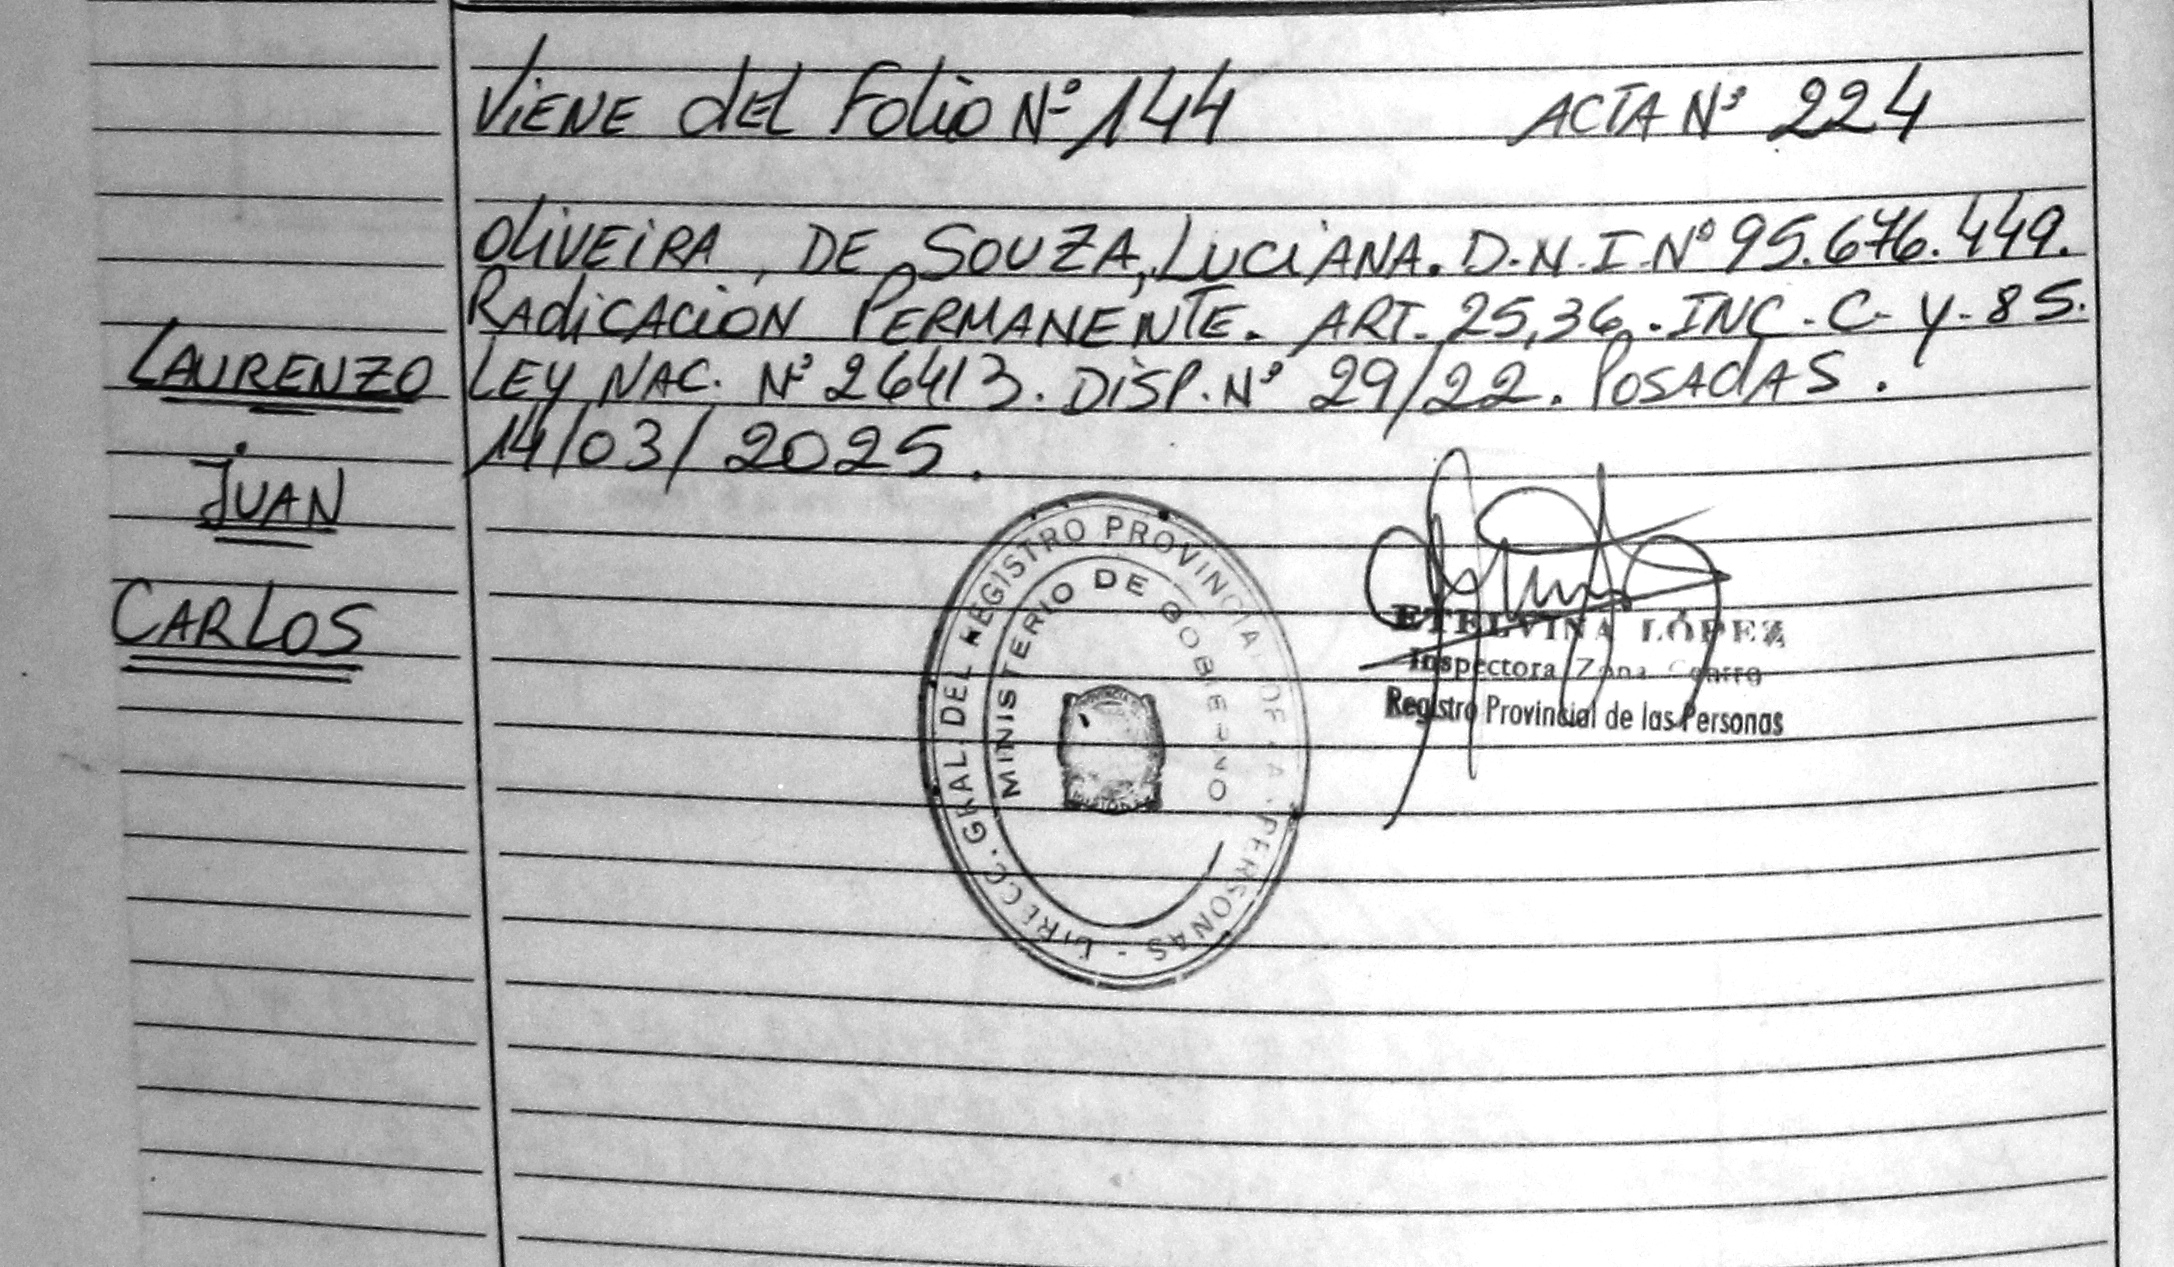 ViENE dEL Folio Nº 144 ACTA Nº 224
OLiVEiRA, DE SOUZA, LUCiANA. D.N.I. Nº 95.676.449.
RAdiCACiÓN PERMANENTE. ART. 25,36. INC. C. Y. 85.
LEY NAC. Nº 26413. DiSP. Nº 29/22. POSAdAS.
14/03/2025.
LAURENZO
JUAN
CARLOS
DIRECC. GRAL DEL REGISTRO PROVINCIAL DE LAS PERSONAS -
MINISTERIO DE GOBIERNO
ETELVINA LÓPEZ
Inspectora Zona Centro
Registro Provincial de las Personas